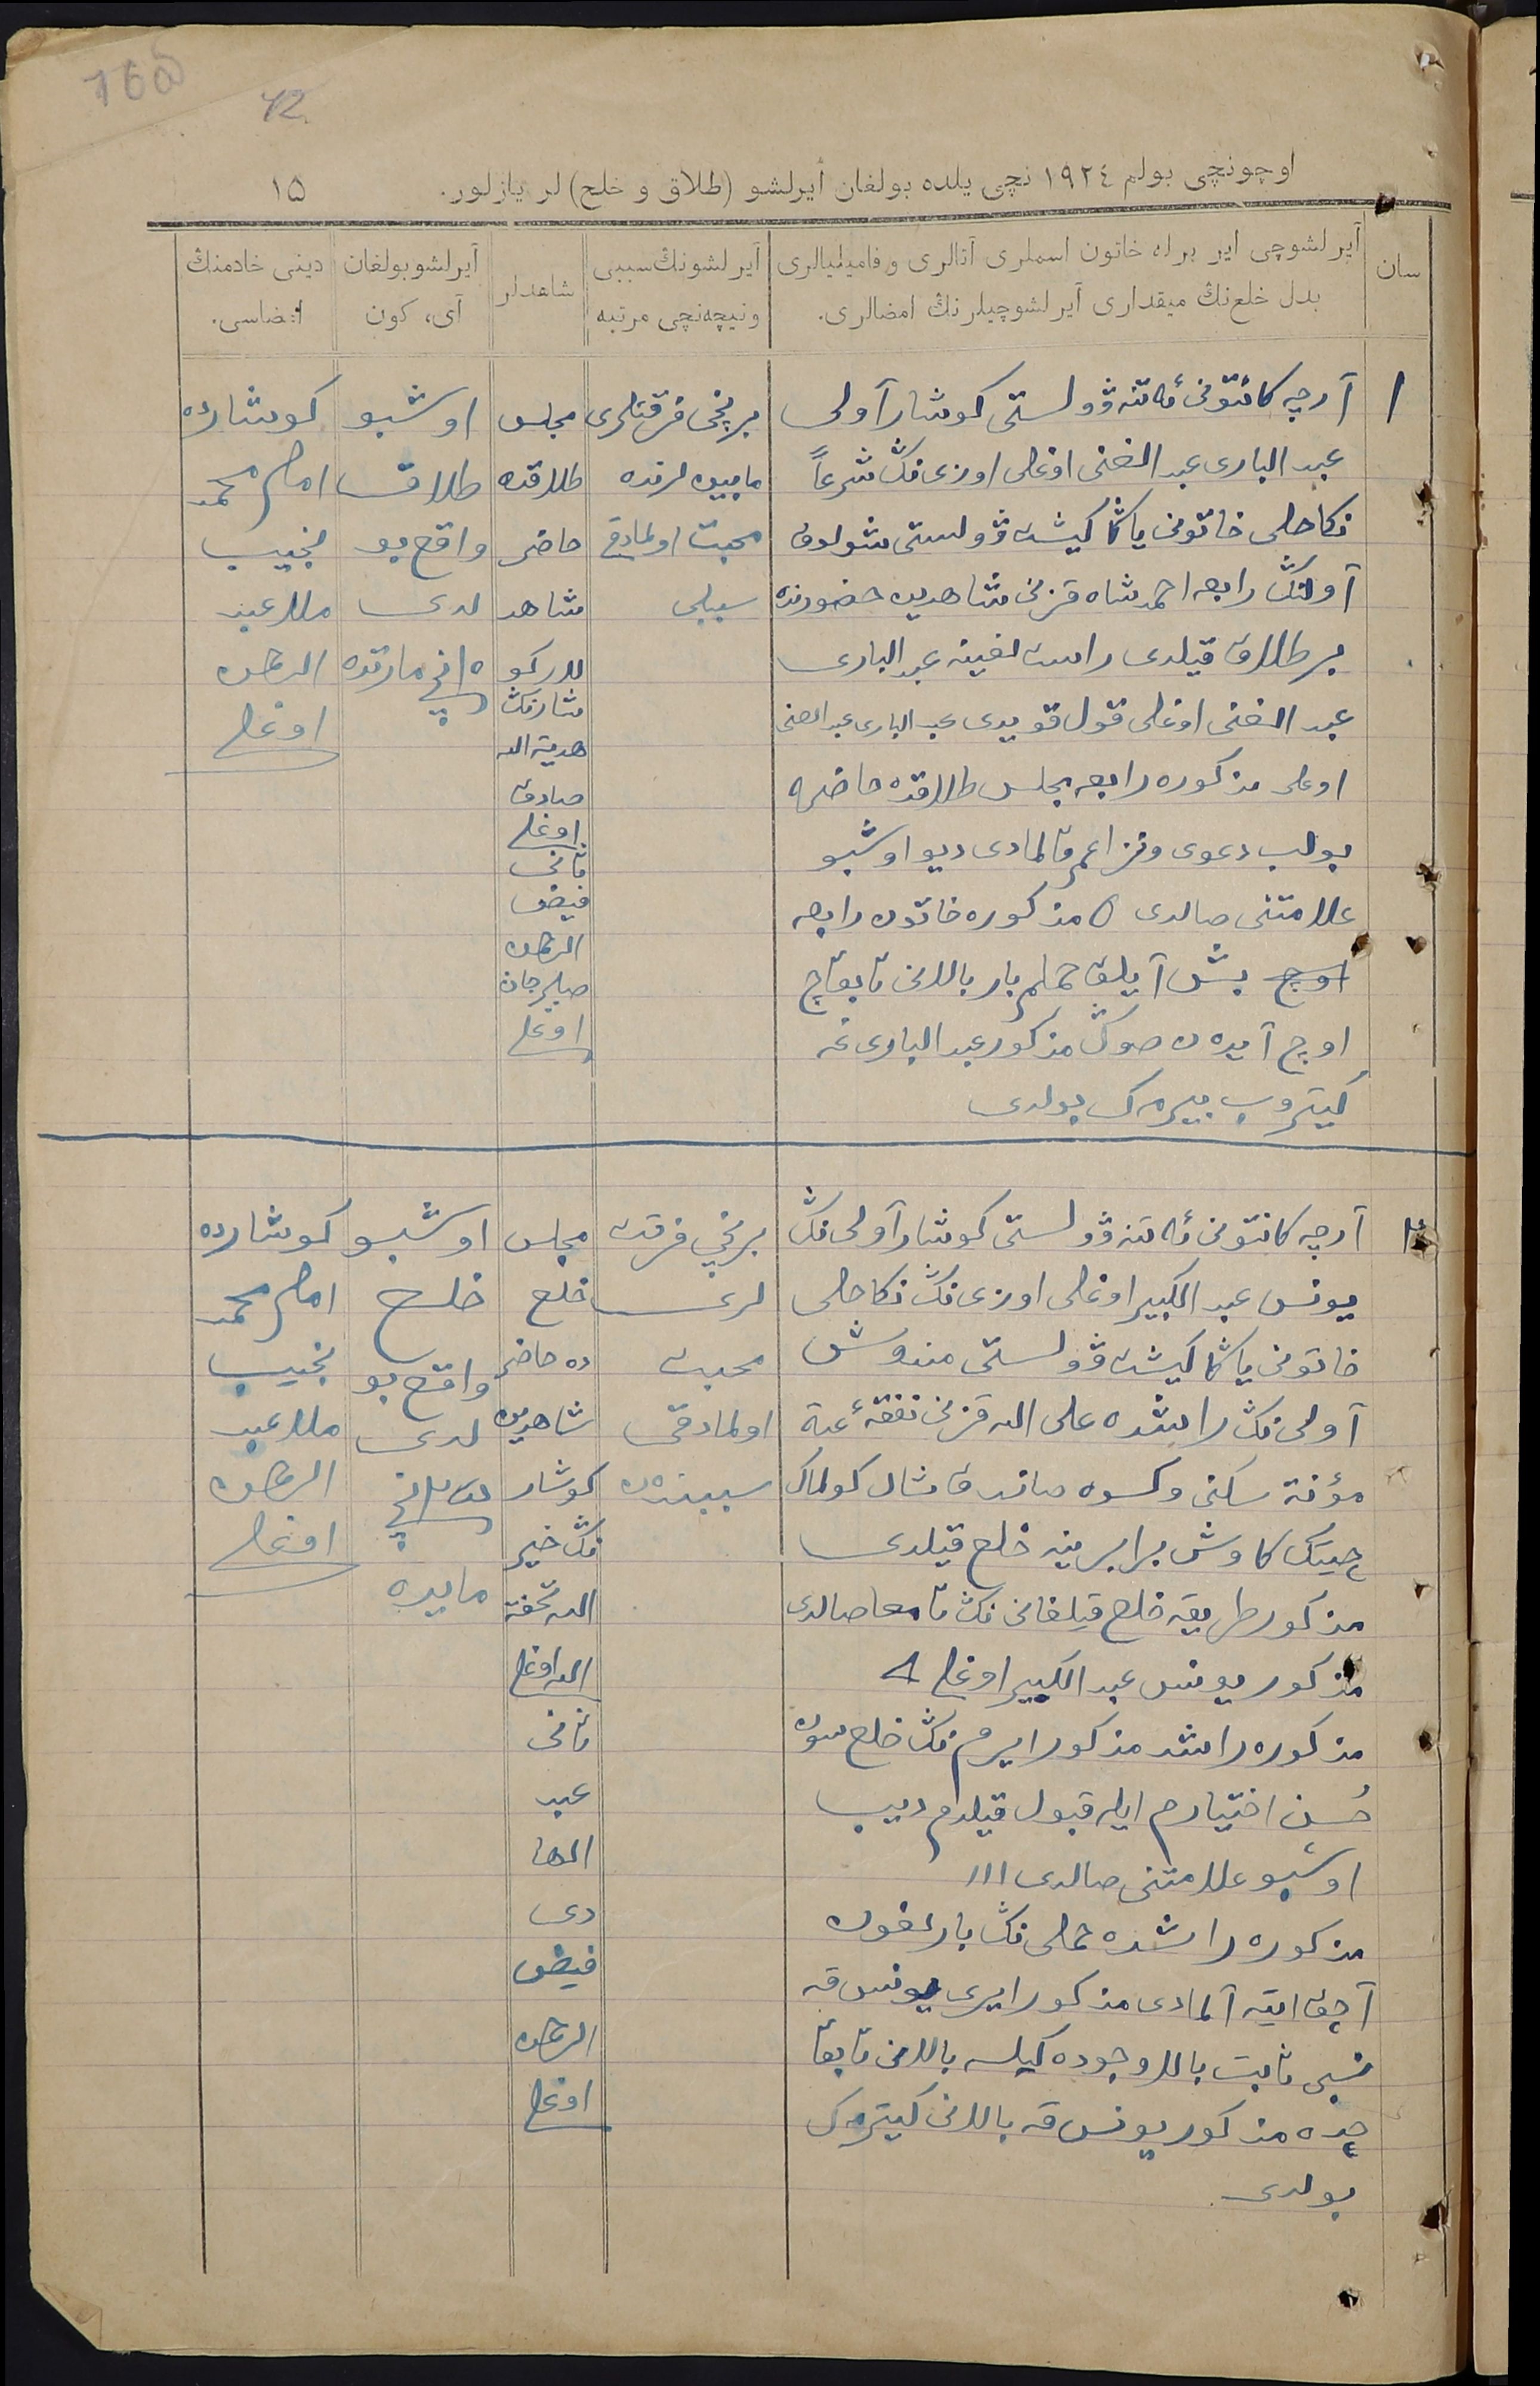 166
42
اوچونچی بولم ١٩٢٤ نچی یلده بولغان أیرلشو (طلاق و خلع) لر یازلور.
١٥
سان
آیرلشوچی ایر برله خاتون اسملری آتالری و فامیلیالری
بدل خلع‌نڭ میقداری آیرلشوچیلرنڭ امضالری.
آیرلشونڭ سببی
ونیچه‌نچی مرتبه
شاهدلر
آیرلشو بولغان
آی، کون
دینی خادمنڭ
امضاسی.
١
آرچه کانتونی وولستی کوشار آولی
عبد الباری عبد الغنی اوغلی اوزی نڭ شرعاً
نکاحلی خاتونی یاڭا کیشت وولستی
آولنڭ رابعه احمدشاه قزنی شاهدین حضورنده
بر طلاق قیلدی راست لغینه عبد الباری
عبد الغنی اوغلی قول قویدی عبد الباری عبد الغنی
اوغلی مذکوره رابعه مجلس طلاقده حاضره
بولب دعوی ونزاعم قالمادی دیو اوشبو
علامتنی صالدی مذکوره خاتون رابعه
اوچ بش آیلق حملم بار بالانی تابقاچ
اوچ آیدن صوڭ مذکور عبد الباری غه
کیتروب بیرمک بولدی
برنچی فرقتلری
مابینلرنده
محبت اولمادق
سببلی
مجلس
طلاقده
حاضر
شاهد
لار کو
شارنڭ
هدیة الله
صادق
اوغلی
ثانی
فیض
الرحمن
صابرجان
اوغلی
اوشبو
طلاق
واقع بو
لدی
١٥نچی مارتده
کوشارده
امام محمد
نجیب
ملا عبد
الرحمن
اوغلی
٢
آرچه کانتونی وولستی کوشار آولی نڭ
یونس عبد الکبیر اوغلی اوزی نڭ نکاحلی
خاتونی یاڭا کیشت وولستی مندوش
آولی نڭ راشده علی الله قزنی نفقهٔ عدة
مؤنة سکنی وکسوه صاندق شال کولماک
چیتک کاوش برابرینه خلع قیلدی
مذکور طریقه خلع قیلغانی نڭ تامغا صالدی
مذکور یونس عبد الکبیر اوغلی
مذکوره راشده مذکور ایرم نڭ خلع سون
حُسن اختیارم ایله قبول قیلدم دیب
اوشبو علامتنی صالدی ١١١
مذکوره راشده حملی نڭ بارلغون
آچق ایته آلمادی مذکور ایری یونس قه
نسبی ثابت بالا وجوده کیلسه بالانی تابقا
چده مذکور یونس قه بالانی کیترمک
بولدی
برنچی فرقت
لری
محبت
اولمادقی
سببندن
مجلس
خلع
ده حاضر
شاهدین
کوشار
نڭ خیر
الله تحفة
الله اوغلی
ثانی
عبد
الها
دی
فیض
الرحمن
اوغلی
اوشبو
خلع
واقع بو
لدی
نچی
مایده
کوشارده
امام محمد
نجیب
ملا عبد
الرحمن
اوغلی